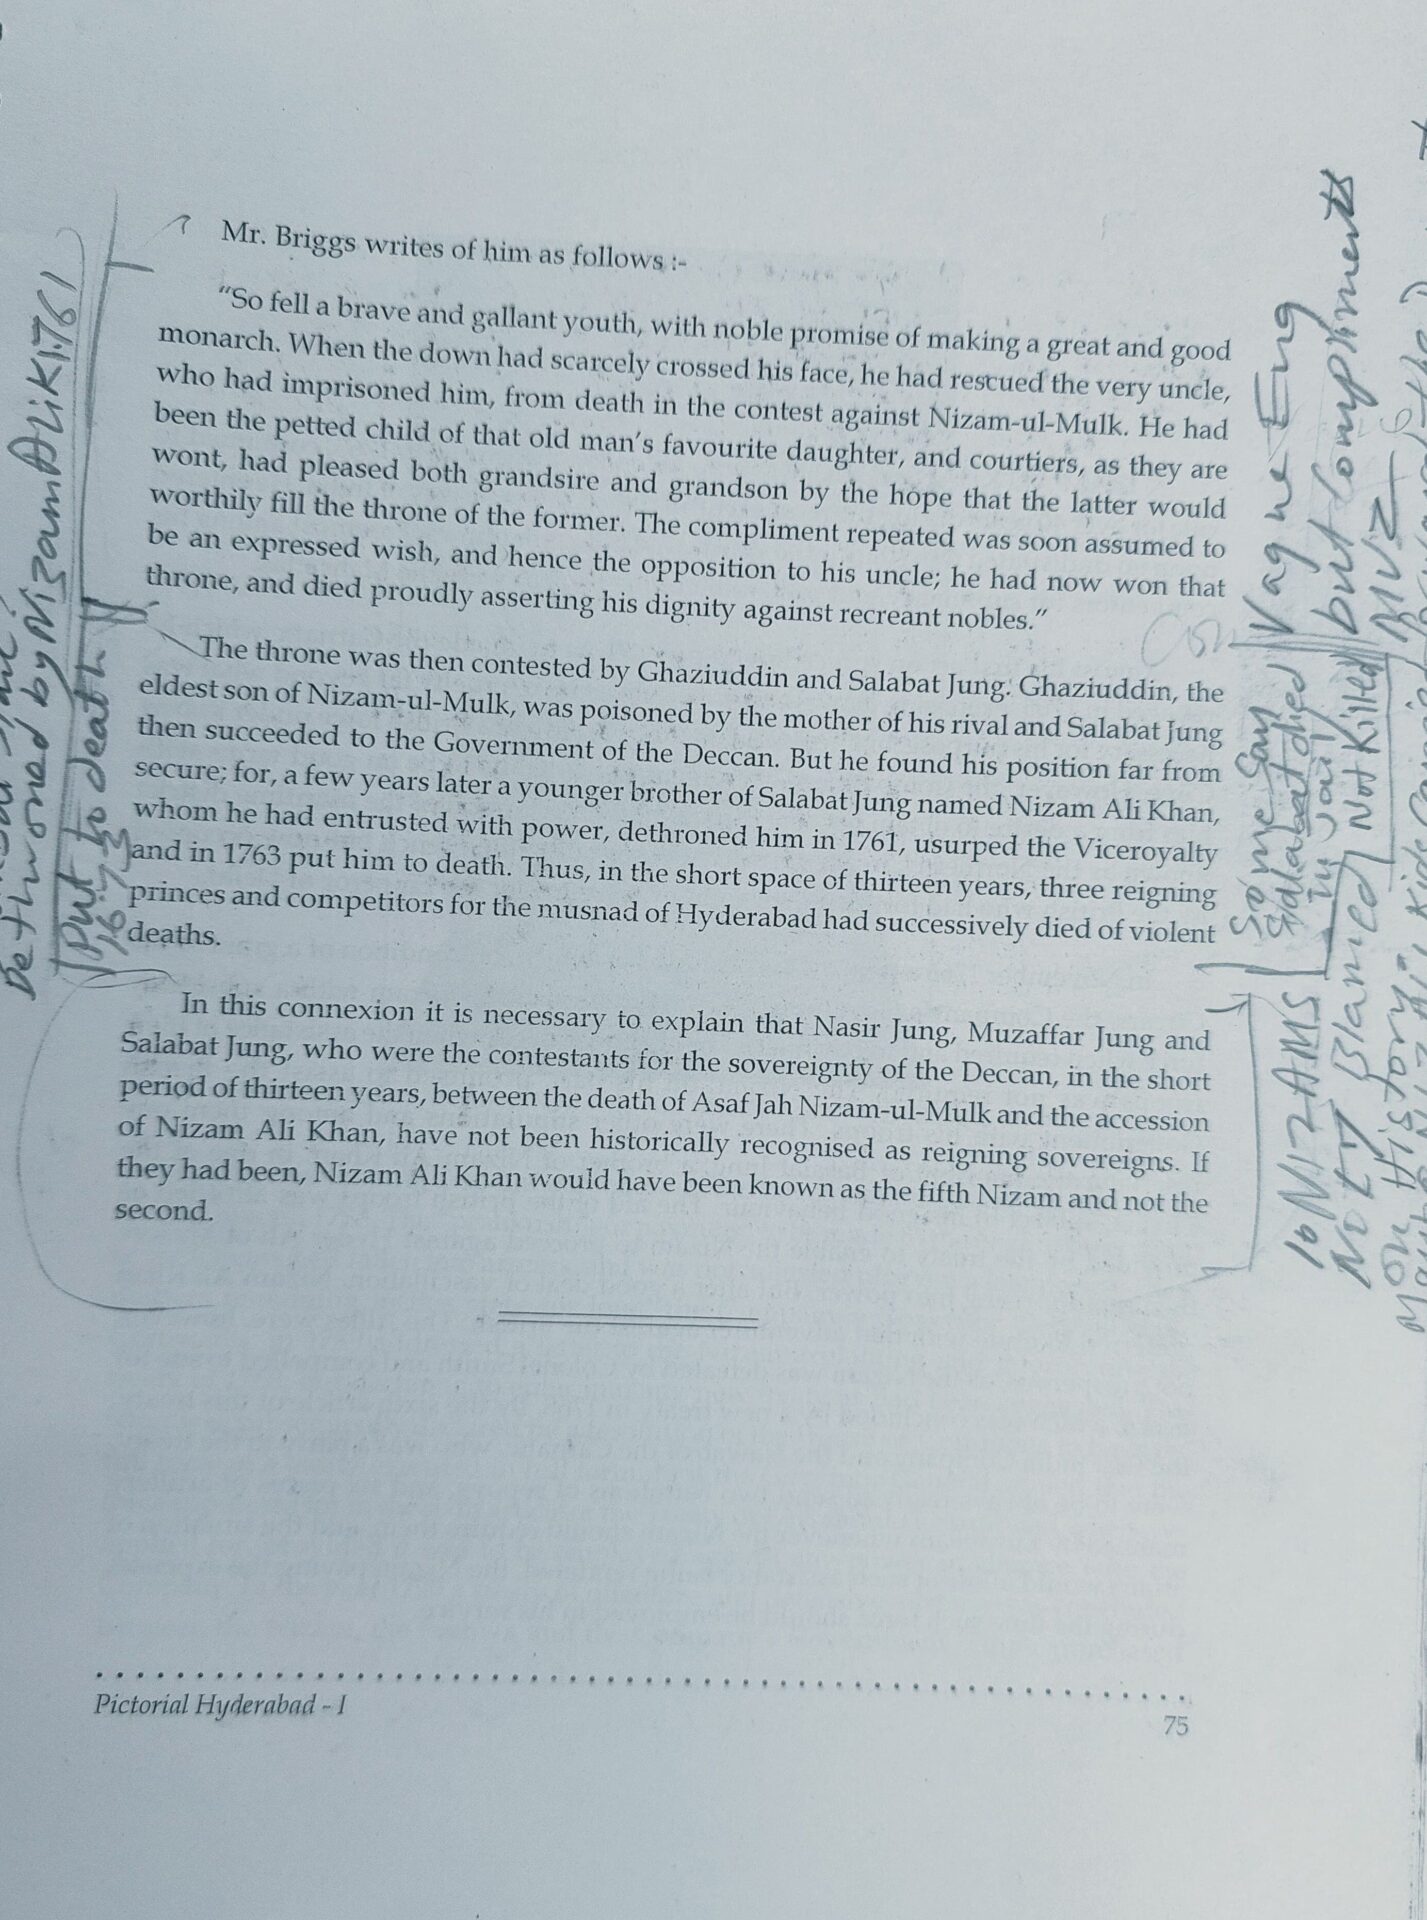 Mr. Briggs writes of him as follows :-
"So fell a brave and gallant youth, with noble promise of making a great and good
monarch. When the down had scarcely crossed his face, he had rescued the very uncle,
who had imprisoned him, from death in the contest against Nizam-ul-Mulk. He had
been the petted child of that old man's favourite daughter, and courtiers, as they are
wont, had pleased both grandsire and grandson by the hope that the latter would
worthily fill the throne of the former. The compliment repeated was soon assumed to
be an expressed wish, and hence the opposition to his uncle; he had now won that
throne, and died proudly asserting his dignity against recreant nobles."
The throne was then contested by Ghaziuddin and Salabat Jung. Ghaziuddin, the
eldest son of Nizam-ul-Mulk, was poisoned by the mother of his rival and Salabat Jung
then succeeded to the Government of the Deccan. But he found his position far from
secure; for, a few years later a younger brother of Salabat Jung named Nizam Ali Khan,
whom he had entrusted with power, dethroned him in 1761, usurped the Viceroyalty
and in 1763 put him to death. Thus, in the short space of thirteen years, three reigning
princes and competitors for the musnad of Hyderabad had successively died of violent
deaths.
In this connexion it is necessary to explain that Nasir Jung, Muzaffar Jung and
Salabat Jung, who were the contestants for the sovereignty of the Deccan, in the short
period of thirteen years, between the death of Asaf Jah Nizam-ul-Mulk and the accession
of Nizam Ali Khan, have not been historically recognised as reigning sovereigns. If
they had been, Nizam Ali Khan would have been known as the fifth Nizam and not the
second.
Pictorial Hyderabad - I
75
Dethroned by Nizam Ali K 1761
Put to death
1673
Vague Eng
but compliments
MUZ
Some say
Salabat died
in jail
Not Killed
10 NIZAMS
Not Blamed
on History